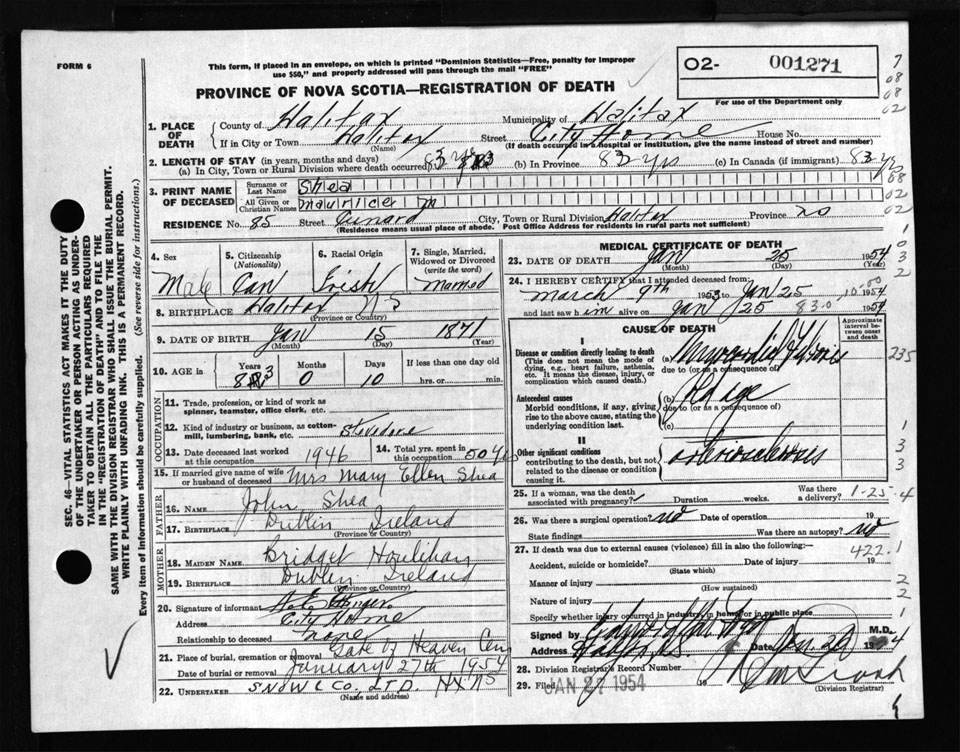 FORM 6
This form, if placed in an envelope, on which is printed "Dominion Statistics—Free, penalty for improper
use $50," and properly addressed will pass through the mail "FREE"
PROVINCE OF NOVA SCOTIA—REGISTRATION OF DEATH
02- 001271
For use of the Department only
7
08
08
02
1. PLACE OF DEATH
County of Halifax Municipality of Halifax
If in City or Town Halifax Street City Home House No.
(Name) (If death occurred in a hospital or institution, give the name instead of street and number)
2. LENGTH OF STAY (in years, months and days)
(a) In City, Town or Rural Division where death occurred 83 yrs (b) In Province 83 yrs (c) In Canada (if immigrant) 83 yrs
3. PRINT NAME OF DECEASED
Surname or Last Name Shea
All Given or Christian Names Maurice M
08
02
02
RESIDENCE No. 85 Street Cunard City, Town or Rural Division Halifax Province NS
(Residence means usual place of abode. Post Office Address for residents in rural parts not sufficient)
4. Sex 5. Citizenship (Nationality) 6. Racial Origin 7. Single, Married, Widowed or Divorced (write the word)
Male Can Irish Married
8. BIRTHPLACE Halifax NS
(Province or Country)
9. DATE OF BIRTH Jan 15 1871
(Month) (Day) (Year)
10. AGE in Years Months Days If less than one day old
83 0 10 hrs. or min.
OCCUPATION
11. Trade, profession, or kind of work as spinner, teamster, office clerk, etc.
12. Kind of industry or business, as cotton-mill, lumbering, bank, etc. Stevedore
13. Date deceased last worked at this occupation 1946 14. Total yrs. spent in this occupation 50 yrs
15. If married give name of wife or husband of deceased Mrs Mary Ellen Shea
FATHER
16. NAME John Shea
17. BIRTHPLACE Dublin Ireland
(Province or Country)
MOTHER
18. MAIDEN NAME Bridget Houlihan
19. BIRTHPLACE Dublin Ireland
(Province or Country)
20. Signature of informant
Address City Home
Relationship to deceased none
21. Place of burial, cremation or removal Gate of Heaven Cem
Date of burial or removal January 27th 1954
22. UNDERTAKER SNOW & CO, LTD. HX NS
(Name and address)
MEDICAL CERTIFICATE OF DEATH
23. DATE OF DEATH Jan 25 1954
(Month) (Day) (Year)
1
0
3
2
24. I HEREBY CERTIFY that I attended deceased from:
March 9th Jan 25 1954
and last saw him alive on Jan 25 1954
CAUSE OF DEATH
Approximate interval between onset and death
I
Disease or condition directly leading to death
(This does not mean the mode of dying, e.g., heart failure, asthenia, etc. It means the disease, injury, or complication which caused death.)
(a)
due to (or as a consequence of)
235
Antecedent causes
Morbid conditions, if any, giving rise to the above cause, stating the underlying condition last.
(b) Old age
due to (or as a consequence of)
(c)
II
Other significant conditions
contributing to the death, but not related to the disease or condition causing it.
arteriosclerosis
1
3
3
25. If a woman, was the death associated with pregnancy? Duration weeks. Was there a delivery?
1-25-4
26. Was there a surgical operation? no Date of operation 19
State findings Was there an autopsy? no
27. If death was due to external causes (violence) fill in also the following:—
422.1
Accident, suicide or homicide? Date of injury 19
(State which)
Manner of injury
(How sustained)
2
2
Nature of injury
Specify whether injury occurred in industry, in home or in public place
1
Signed by M.D.
Address Halifax NS. Date Jan. 26 1954
28. Division Registrar's Record Number
29. Filed JAN 27 1954 19
(Division Registrar)
SEC. 46—VITAL STATISTICS ACT MAKES IT THE DUTY
OF THE UNDERTAKER OR PERSON ACTING AS UNDER-
TAKER TO OBTAIN ALL THE PARTICULARS REQUIRED
IN THE "REGISTRATION OF DEATH" AND TO FILE THE
SAME WITH THE DIVISION REGISTRAR WHO SHALL ISSUE THE BURIAL PERMIT.
WRITE PLAINLY WITH UNFADING INK. THIS IS A PERMANENT RECORD.
Every item of information should be carefully supplied. (See reverse side for instructions.)